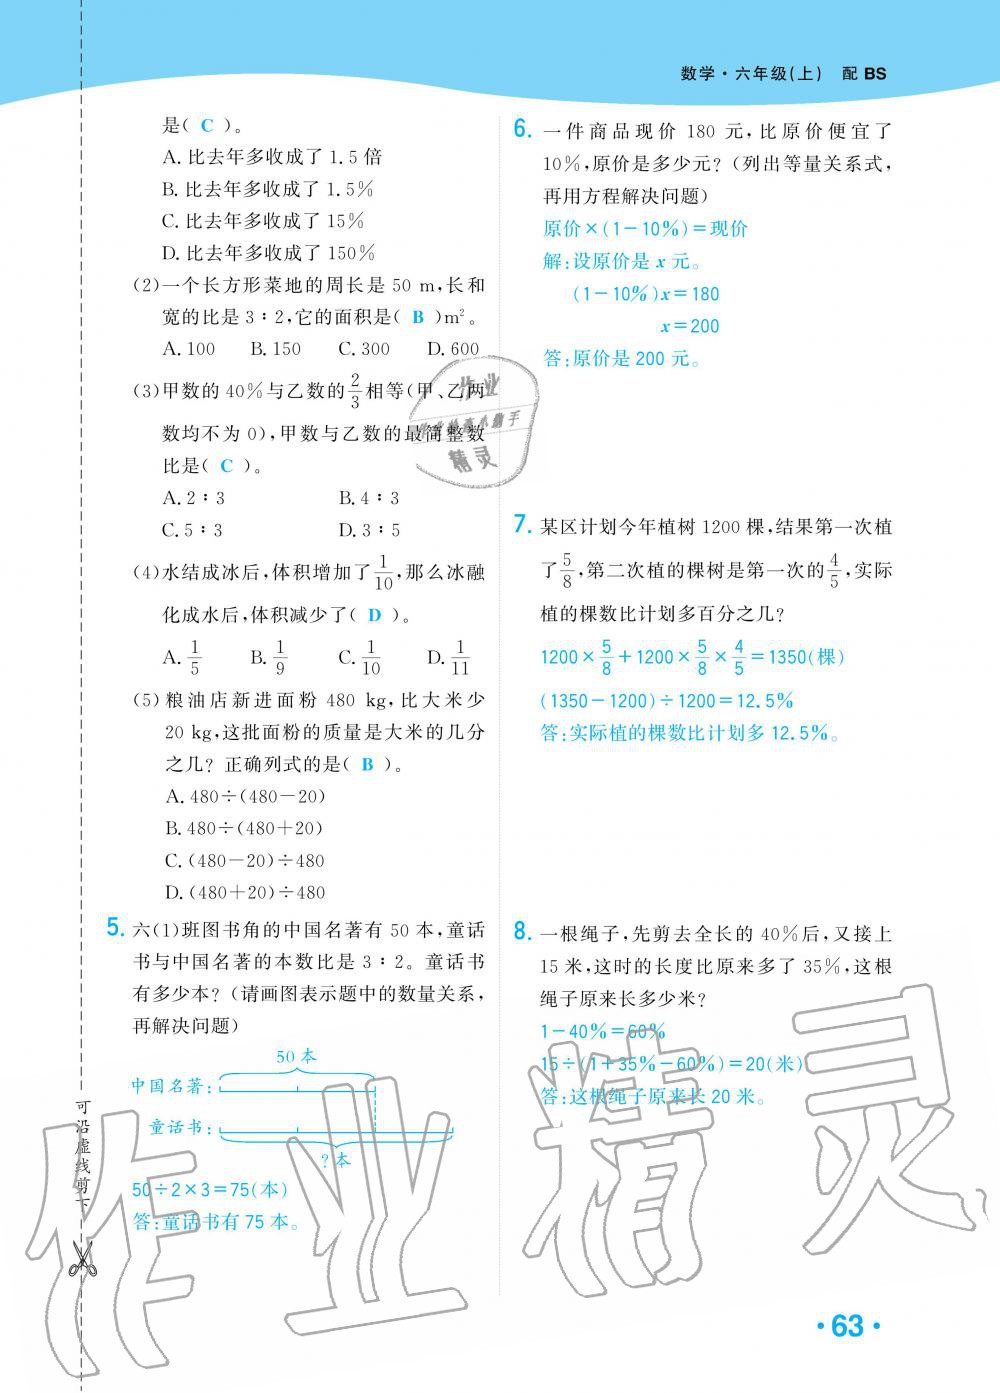 数学·六年级(上) 配 BS
是( C )。
A. 比去年多收成了 1.5 倍
B. 比去年多收成了 1.5%
C. 比去年多收成了 15%
D. 比去年多收成了 150%
(2)一个长方形菜地的周长是 50 m,长和
宽的比是 3∶2,它的面积是( B )m²。
A. 100 B. 150 C. 300 D. 600
(3)甲数的 40%与乙数的 2/3 相等(甲、乙两
数均不为 0),甲数与乙数的最简整数
比是( C )。
A. 2∶3 B. 4∶3
C. 5∶3 D. 3∶5
(4)水结成冰后,体积增加了 1/10,那么冰融
化成水后,体积减少了( D )。
A. 1/5 B. 1/9 C. 1/10 D. 1/11
(5)粮油店新进面粉 480 kg,比大米少
20 kg,这批面粉的质量是大米的几分
之几? 正确列式的是( B )。
A. 480÷(480-20)
B. 480÷(480+20)
C. (480-20)÷480
D. (480+20)÷480
5. 六(1)班图书角的中国名著有 50 本,童话
书与中国名著的本数比是 3∶2。童话书
有多少本?(请画图表示题中的数量关系,
再解决问题)
50 本
中国名著:
童话书:
? 本
50÷2×3=75(本)
答:童话书有 75 本。
6. 一件商品现价 180 元,比原价便宜了
10%,原价是多少元?(列出等量关系式,
再用方程解决问题)
原价×(1-10%)=现价
解:设原价是 x 元。
(1-10%)x=180
x=200
答:原价是 200 元。
7. 某区计划今年植树 1200 棵,结果第一次植
了 5/8,第二次植的棵树是第一次的 4/5,实际
植的棵数比计划多百分之几?
1200×5/8+1200×5/8×4/5=1350(棵)
(1350-1200)÷1200=12.5%
答:实际植的棵数比计划多 12.5%。
8. 一根绳子,先剪去全长的 40%后,又接上
15 米,这时的长度比原来多了 35%,这根
绳子原来长多少米?
1-40%=60%
15÷(1+35%-60%)=20(米)
答:这根绳子原来长 20 米。
可沿虚线剪下
·63·
作业
精灵
作业精灵